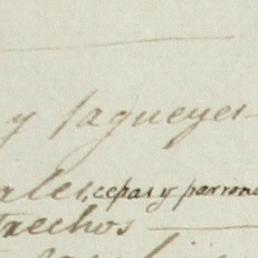 y sagueyes
ales, cepas y parrona
trechos